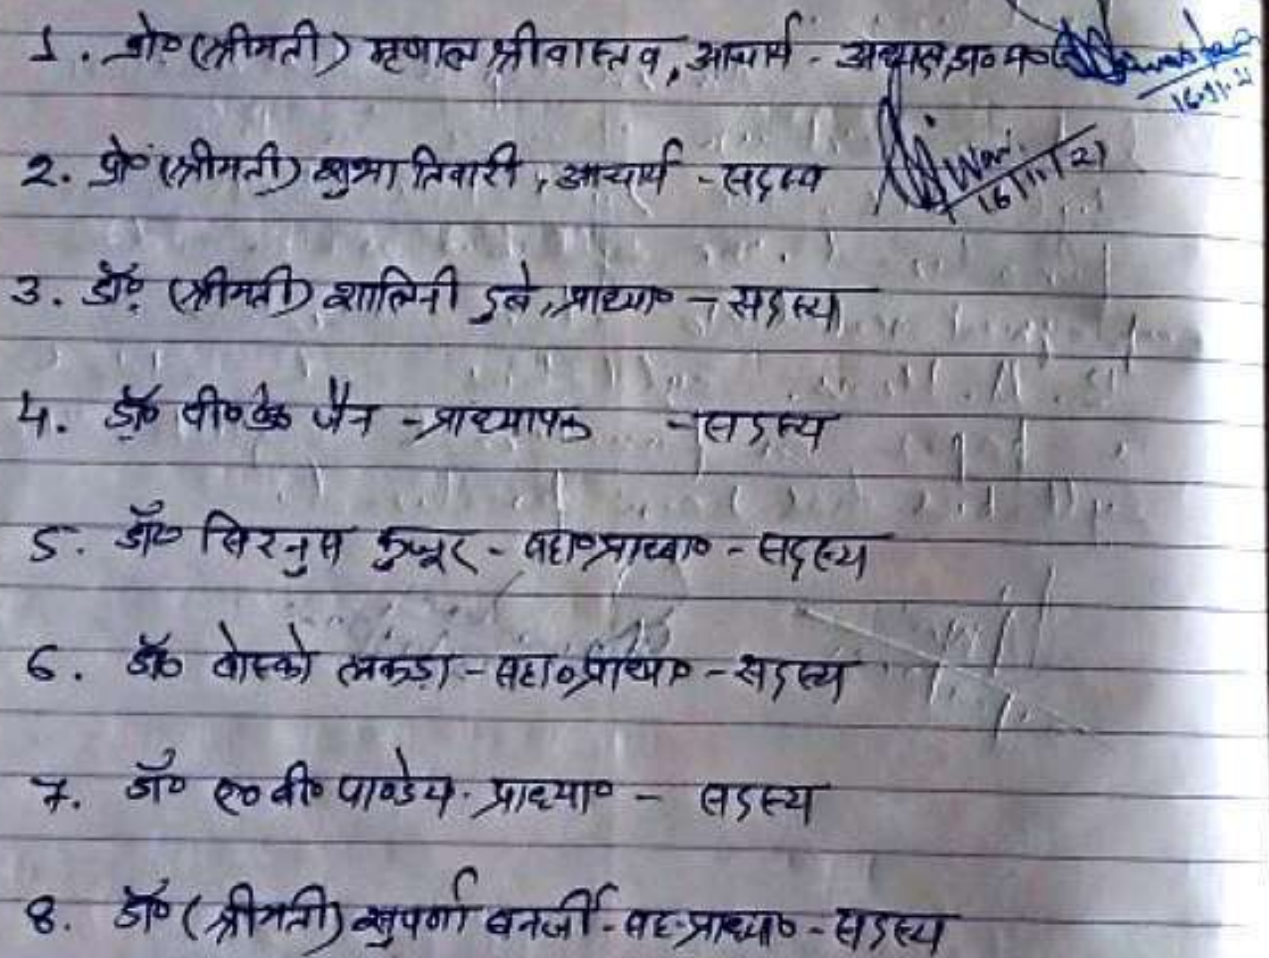 1. प्रो० (श्रीमती) मृणाल श्रीवास्तव, आचार्य - अध्यक्ष, 16.11.21
2. प्रो० (श्रीमती) शुभा तिवारी, आचार्य - सदस्य 16/11/21
3. डॉ० (श्रीमती) शालिनी दुबे, प्राध्या० - सदस्य
4. डॉ० वी० के० जैन - प्राध्यापक - सदस्य
5. डॉ० कुजूर - सहा०प्राध्या० - सदस्य
6. डॉ० बोस्को लकड़ा - सहा०प्राध्या० - सदस्य
7. डॉ० ए० वी० पाण्डेय. प्राध्या० - सदस्य
8. डॉ० (श्रीमती) सुपर्णा बनर्जी - सह-प्राध्या० - सदस्य